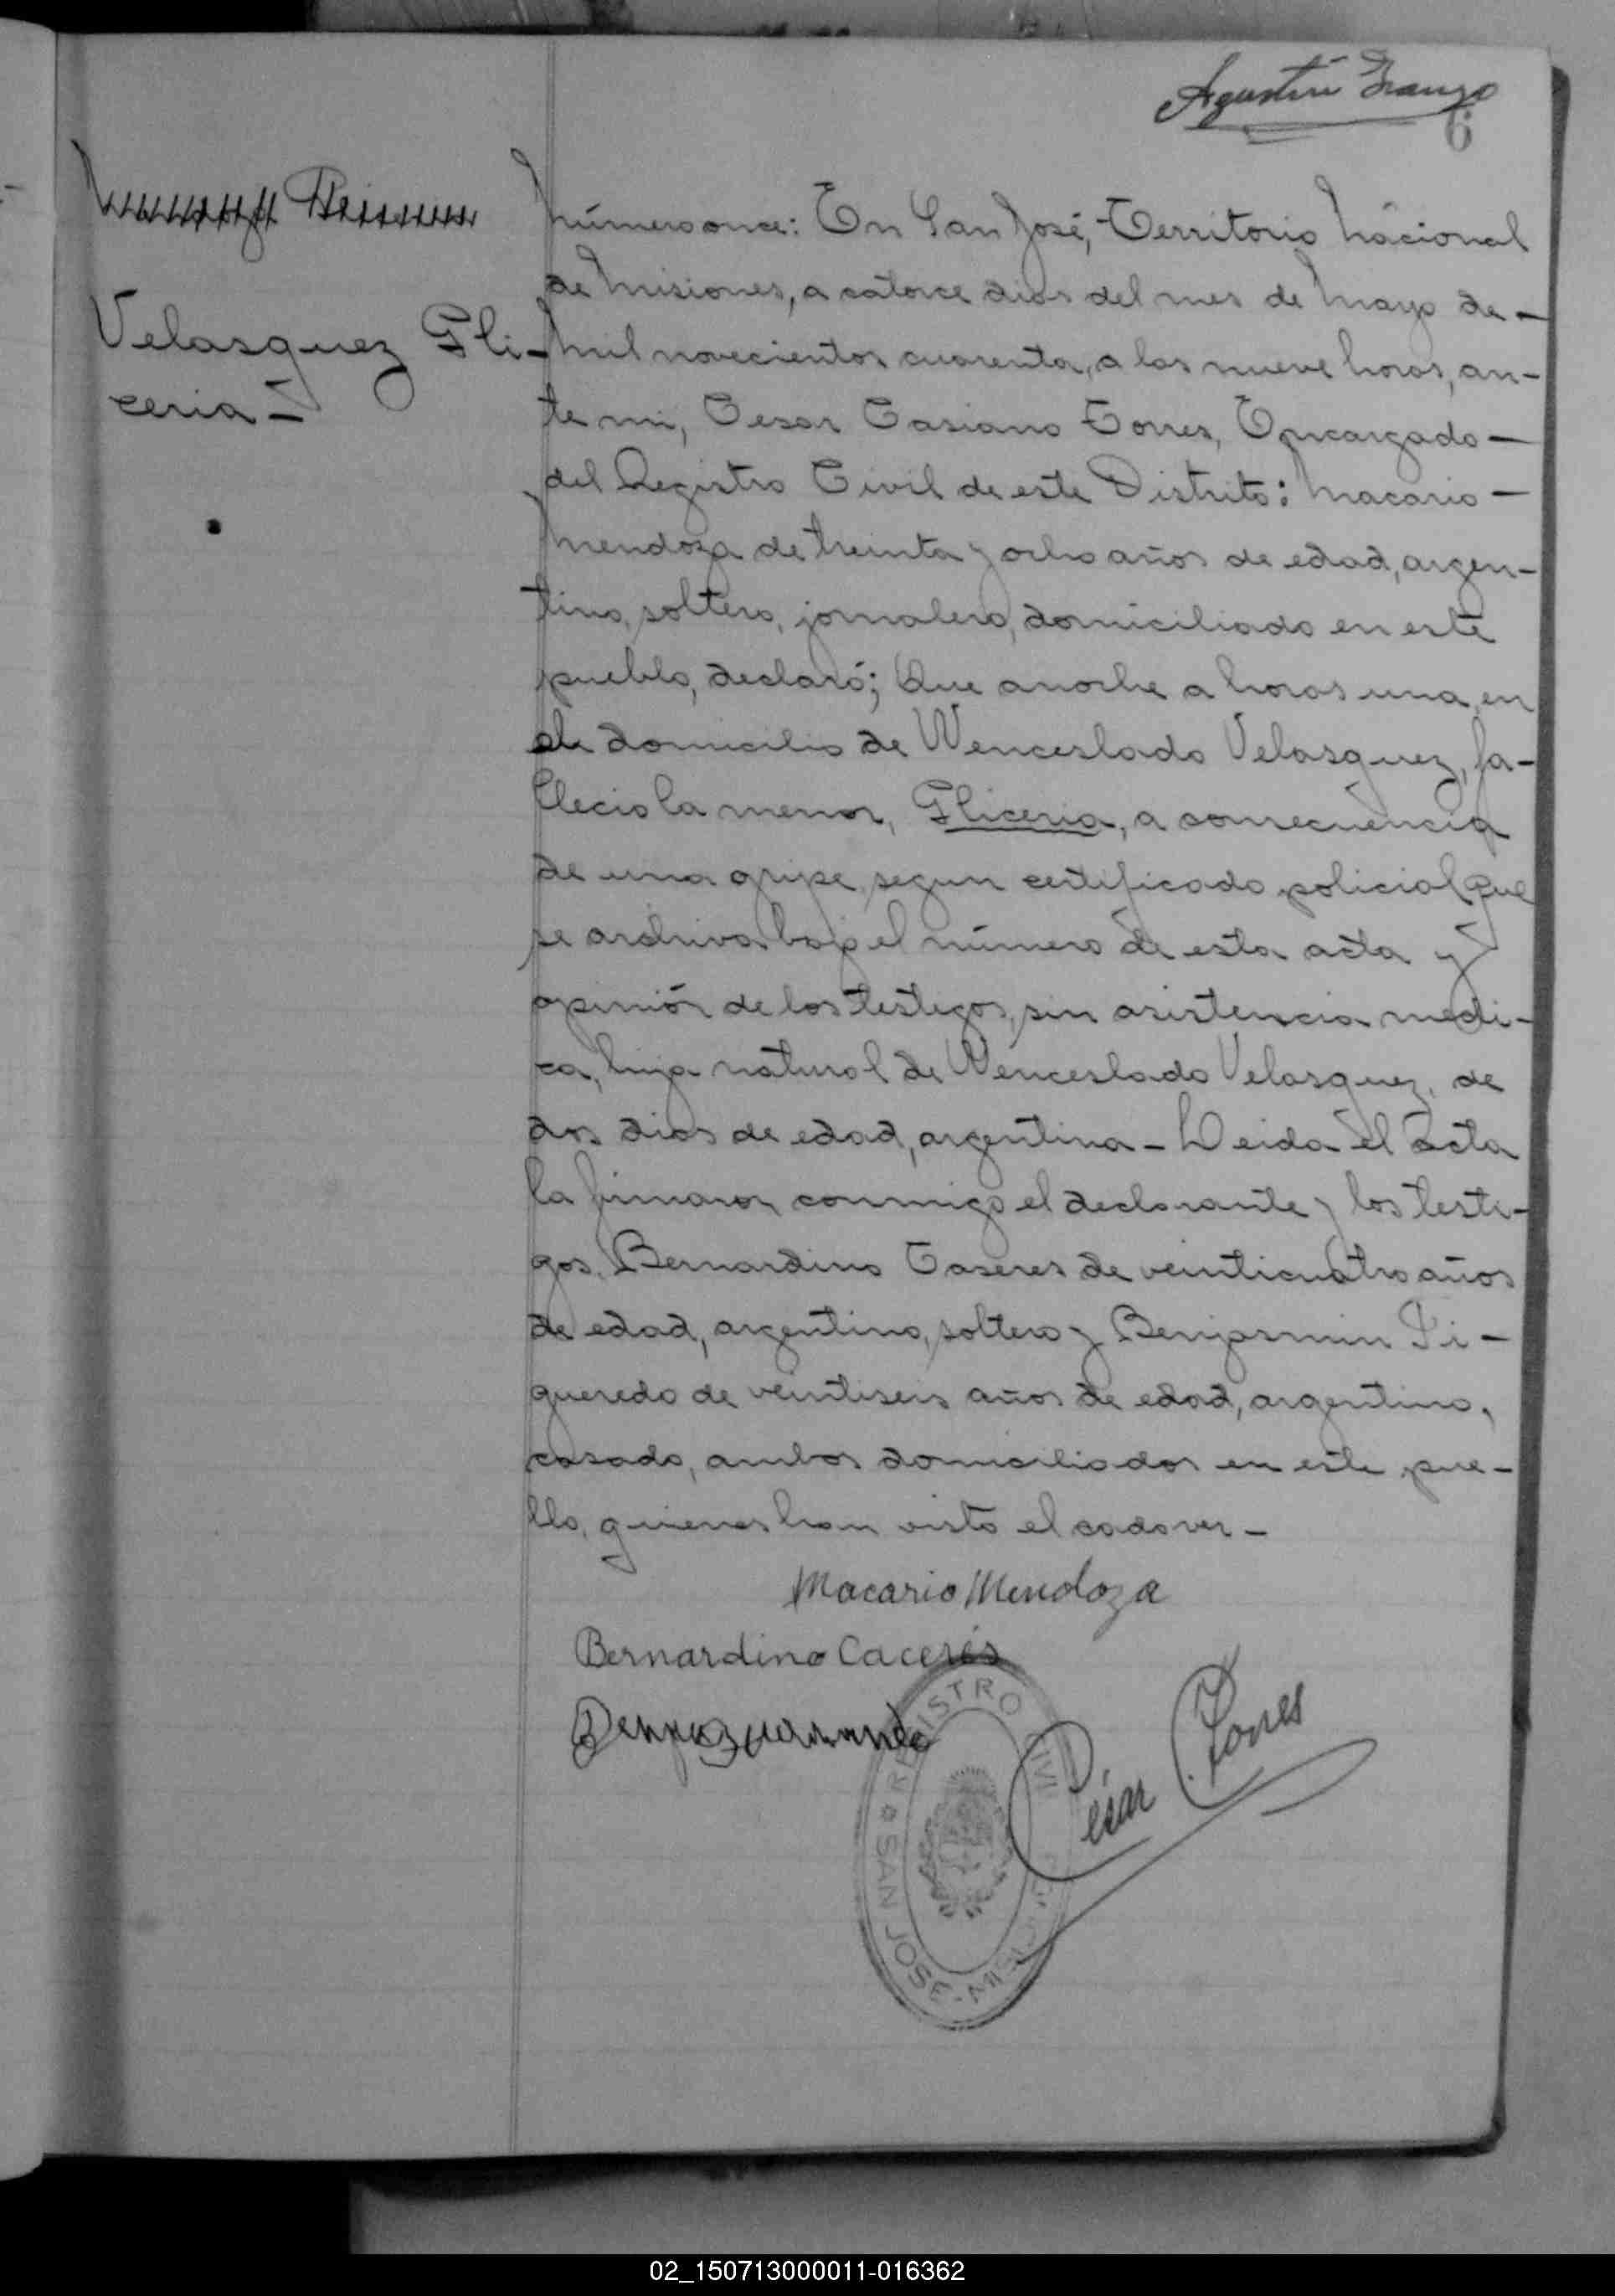 Agustín Franzo
6
Velasquez Gli-
ceria -
Número once: En San José, Territorio Nacional
de Misiones, a catorce dias del mes de Mayo de -
mil novecientos cuarenta, a las nueve horas, an-
te mi, Cesar Casiano Torres, Encargado -
del Registro Civil de este Distrito: Macario -
Mendoza de treinta y ocho años de edad, argen-
tino, soltero, jornalero, domiciliado en este
pueblo, declaró; Que anoche a horas una, en
el domicilio de Wenceslado Velasquez, fa-
llecio la menor, Gliceria, a consecuencia
de una gripe, segun certificado policial que
se archiva bajo el número de esta acta y
opinión de los testigos, sin asistencia medi-
ca, hija natural de Wenceslado Velasquez, de
dos dias de edad, argentina - Leida el acta
la firmaron conmigo el declarante y los testi-
gos, Bernardino Caseres de veinticuatro años
de edad, argentino, soltero y Benjamin Fi-
gueredo de veintiseis años de edad, argentino,
casado, ambos domiciliados en este pue-
blo, quienes han visto el cadaver -
Macario Mendoza
Bernardino Caceres
César C. Torres
REGISTRO CIVI
SAN JOSE - MISIO
02_150713000011-016362